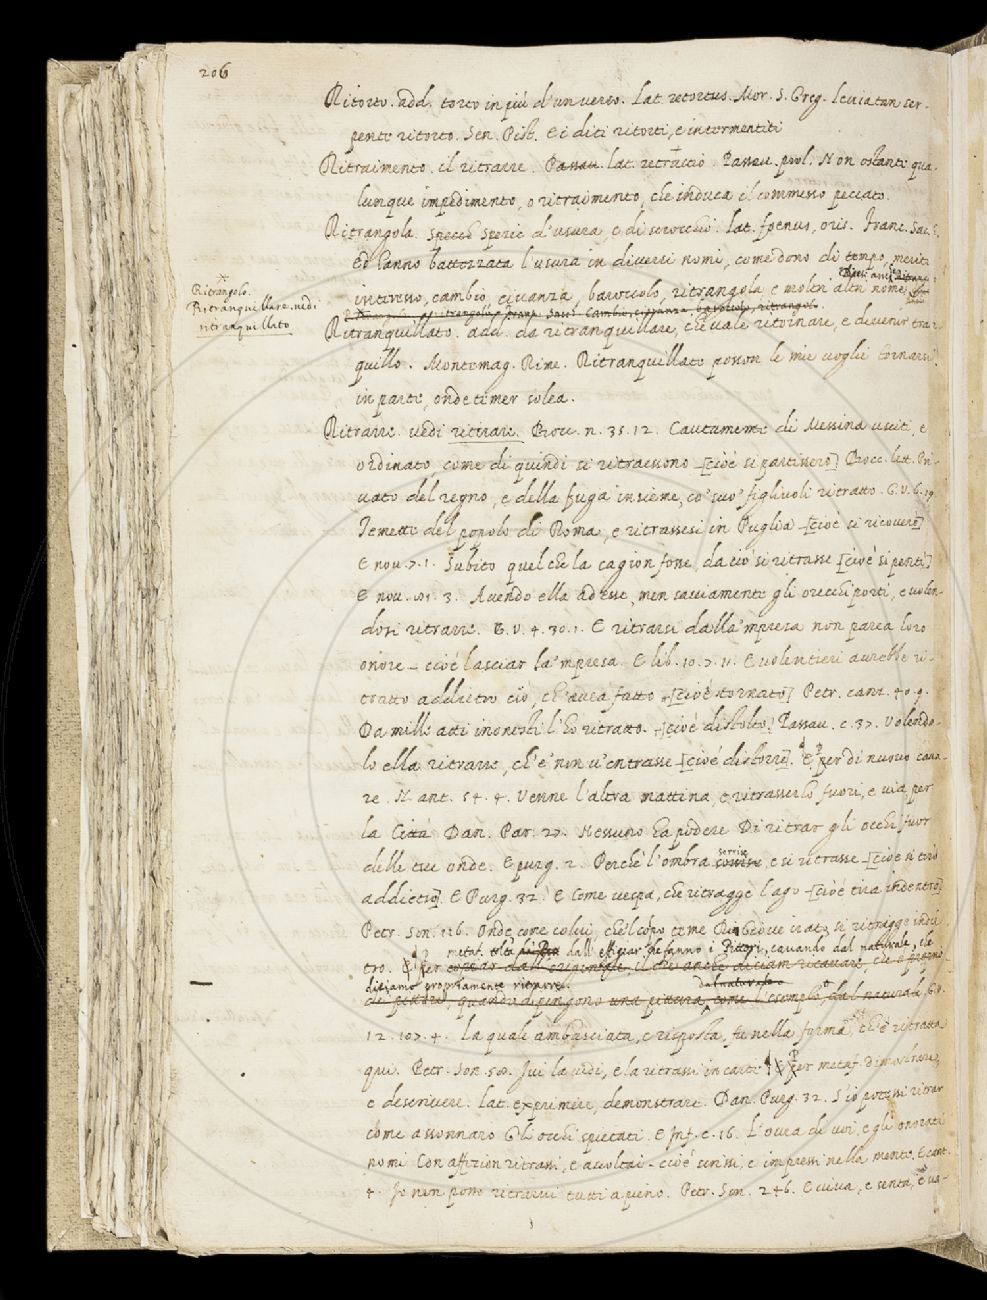 206
Ritorto. add. torto in più d'un verso. Lat. retortus. Mor. S. Greg. leuiatan ser-
pente ritorto. Sen. Pist. E i diti ritorti, e intormentiti
Ritraimento. il ritrarre. Passau. lat. retractio. Passau. prol. Non ostante qua-
lunque impedimento, o ritraimento, che induca il commesso peccato.
Ritrangola. spezie d'usura, e di scrocchio. lat. foenus, oris. Franc. Sac.
Ed hanno battezzata l'usura in diuersi nomi, come dono di tempo, merito
Ritrangolo.
Ritranquillare. uedi
ritranquillato
interesso, cambio, ciuanza, baroccolo, ritrangola e molti altri nomi
Ritranquillato. add. da ritranquillare, che uale ritornare, e deuenir tran-
quillo. Montemag. Rime. Ritranquillate posson le mie uoglie tornarsi
in parte, onde temer solea.
Ritrarre. uedi ritirare. Bocc. n. 35. 12. Cautamente di Messina usciti, e
ordinato, come di quindi si ritraessono [cioè si partissero] Bocc. lett. Pri-
uato del regno, e della fuga insieme, co' suo' figliuoli ritratto. G. V. 6. 19
Temette del popolo di Roma, e ritrassesi in Puglia [cioè si ricouerò]
E nou. 7. 1. Subito quel che la cagion fosse, da ciò si ritrasse [cioè si pentì]
E nou. 3. Auendo ella ad esse, men sauiamente gli orecchi porti, e uolen-
dosi ritrarre. G. V. 4. 30. 1. E ritrarsi dalla 'mpresa non parea loro
onore - cioè lasciar la 'mpresa. E lib. 10. 7. 11. E uolentieri aurebbe ri-
tratto addietro ciò, ch'auea fatto [cioè stornato] Petr. canz. 40. 9.
Da mille atti inonesti l'ho ritratto. [cioè distolto] Passau. c. 37. Volendo-
lo ella ritrarre, ch'e' non u'entrasse [cioè distorre]. E per di nuouo caua-
re. N. ant. 54. 4. Venne l'altra mattina, e ritrasserlo fuori, e uia per
la Città Dan. Par. 27. Nessuno ha podere Di ritrar gli occhi fuor
sorrise
delle tue onde. E purg. 2. Perchè l'ombra e si ritrasse [cioè si tirò
addietro]. E Purg. 32. E Come uespa, che ritragge l'ago [cioè tira indentro]
Petr. Son. 116. Onde, come colui, che'l colpo teme Di Gioue irato, si ritragge indie-
metaf. dall' effigiar che fanno i Pittori, cauando dal naturale, che
tro. Per
diciamo propriamente ritrarre. dal naturale
12. 107. 4. La quale ambasciata, e risposta, fu nella forma, ch'è ritratta
qui. Petr. Son. 58. Iui la uidi, e la ritrassi in carte Per metaf. dimostrare,
e descriuere. Lat. exprimere, demonstrare. Dan. Purg. 32. S'io potessi ritrar
come assonnaro Gli occhi spietati. E Inf. c. 16. L'oura di uoi, e gli onorati
nomi Con affezion ritrassi, e ascoltai - cioè scrissi, e impressi nella mente. E cant.
4. Io non posso ritrarui tutti a pieno. Petr. Son. 246. E uiua, e senta, e ua-